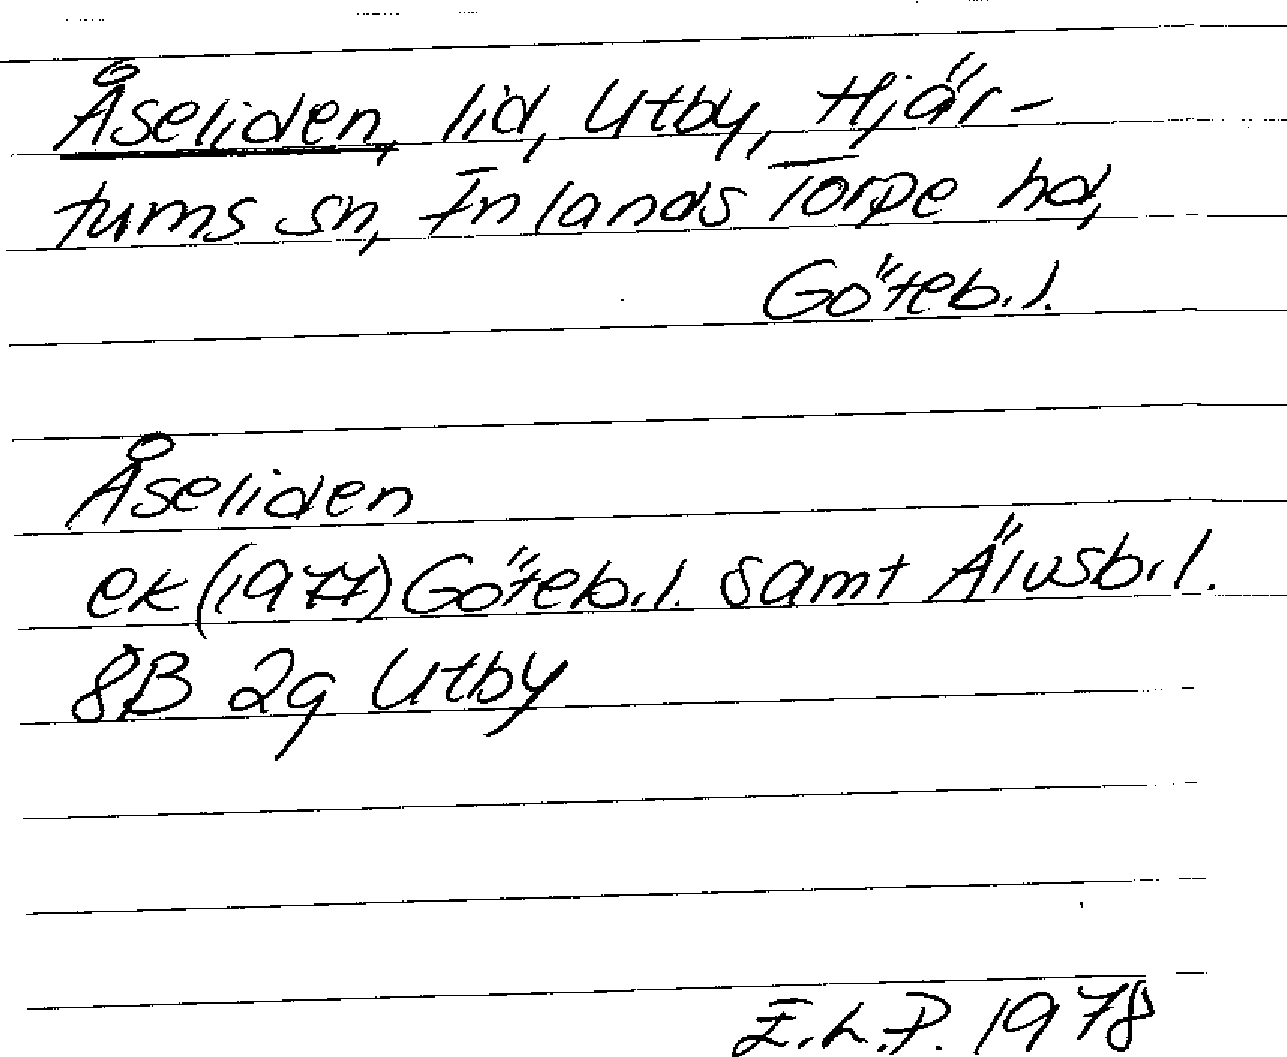 Åseliden, lid, Utby, Hjär-
tums sn, Inlands Torpe hd,
Göteb.l.
Åseliden
ek (1977) Göteb.l. samt Älvsb.l.
8B 2g Utby
E.L.P. 1978